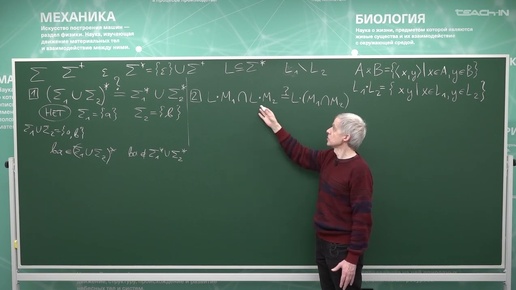 МЕХАНИКА
Искусство построения машины —
раздел физики. Наука, изучающая
движение материальных тел
и взаимодействие между ними.
TEACH-IN
БИОЛОГИЯ
Наука, предметом которой являются
живые существа и их взаимодействие
с окружающей средой.
Σ Σ⁺ ε Σ* = {ε} ∪ Σ⁺ L ⊆ Σ* L₁ \ L₂ A × B = {(x,y) | x∈A, y∈B}
1 (Σ₁ ∪ Σ₂)* ≟ Σ₁* ∪ Σ₂*
НЕТ Σ₁ = {a} Σ₂ = {b}
Σ₁ ∪ Σ₂ = {a,b}
ba ∈ (Σ₁ ∪ Σ₂)* ba ∉ Σ₁* ∪ Σ₂*
2 L·M₁ ∩ L·M₂ ≟ L·(M₁ ∩ M₂)
L₁·L₂ = { xy | x∈L₁, y∈L₂ }